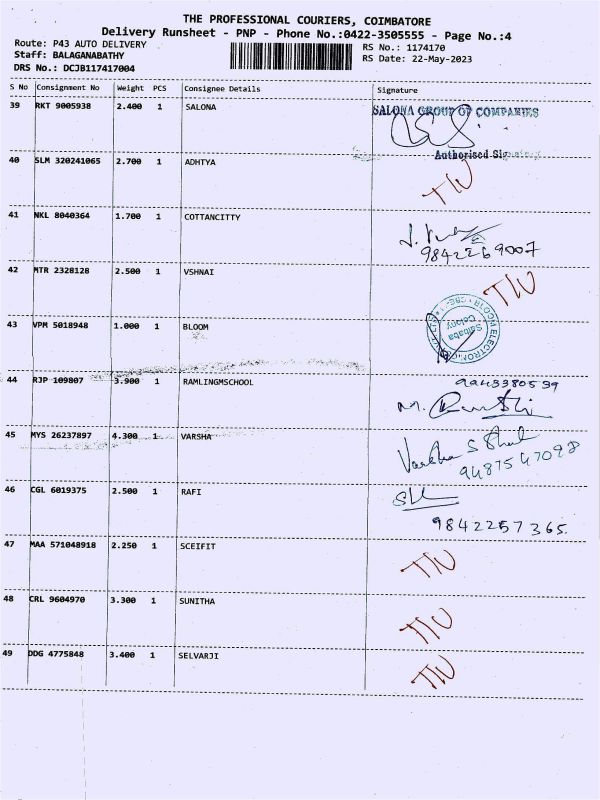 THE PROFESSIONAL COURIERS, COIMBATORE
Delivery Runsheet - PNP - Phone No.:0422-3505555 - Page No.:4
Route: P43 AUTO DELIVERY RS No.: 1174170
Staff: BALAGANABATHY RS Date: 22-May-2023
DRS No.: DCJB117417004
S No Consignment No Weight PCS Consignee Details Signature
39 RKT 9005938 2.400 1 SALONA SALONA GROUP OF COMPANIES
Authorised Signatory
40 SLM 320241065 2.700 1 ADHTYA
41 NKL 8040364 1.700 1 COTTANCITTY
9842269007
42 MTR 2328128 2.500 1 VSHNAI
43 VPM 5018948 1.000 1 BLOOM Saibaba Colony
44 RJP 109807 3.900 1 RAMLINGMSCHOOL
45 MYS 26237897 4.300 1 VARSHA
9487547098
46 CGL 6019375 2.500 1 RAFI
9842257365
47 MAA 571048918 2.250 1 SCEIFIT
48 CRL 9604970 3.300 1 SUNITHA
49 DDG 4775848 3.400 1 SELVARJI